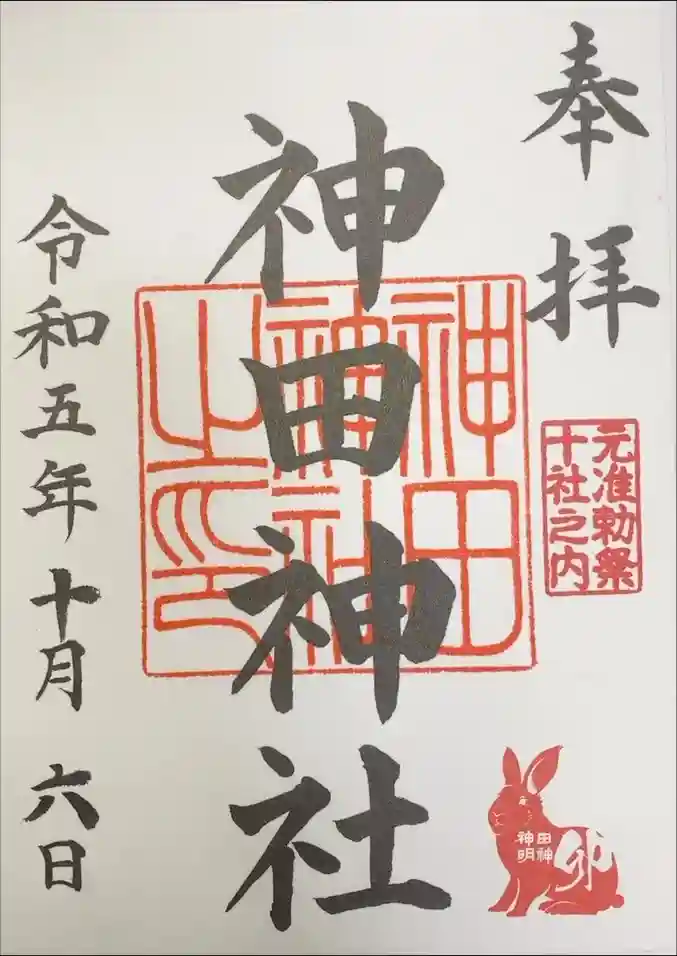 奉拝
元准勅祭
十社之内
神田神社
神田
神社
之印
神田
明神
卯
令和五年十月六日